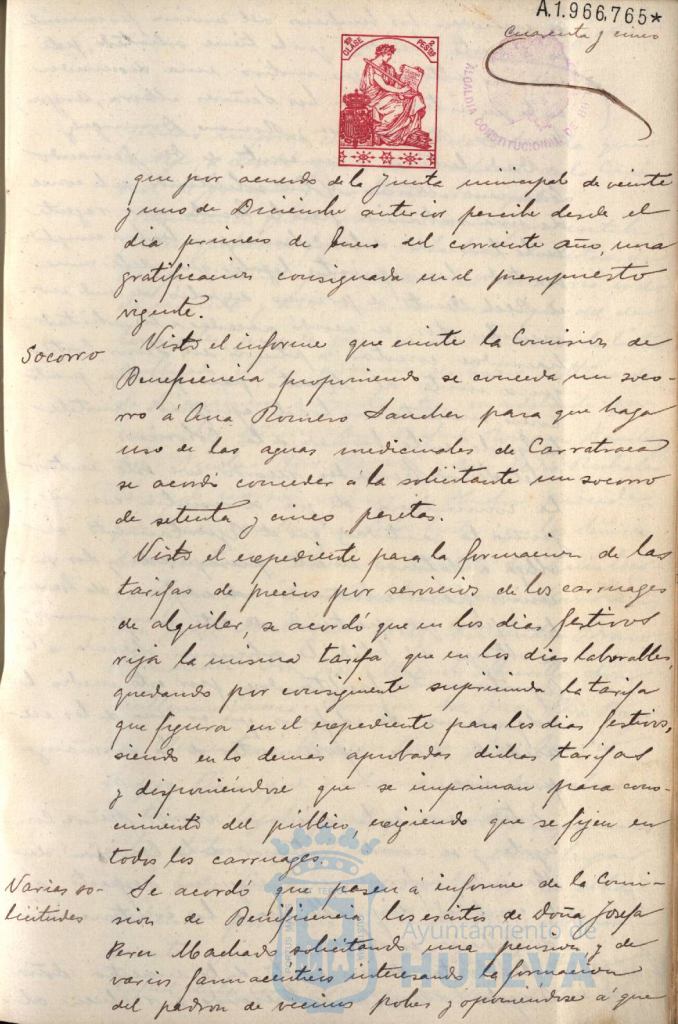 A.1.966,765*
Cuarenta y cinco
CLASE
PESTAS
ALCALDIA CONSTITUCIONAL DE
que por acuerdo de la Junta municipal de veinte
y uno de Diciembre anterior percibe desde el
dia primero de Enero del corriente año, una
gratificacion consignada en el presupuesto
vigente.
Socorro
Visto el informe que emite la Comision de
Beneficiencia proponiendo se conceda un soco-
rro á Ana Romero Sanchez para que haga
uso de las aguas medicinales de Carratraca
se acordó conceder á la solicitante un socorro
de setenta y cinco pesetas.
Visto el expediente para la formacion de las
tarifas de precios por servicios de los carruages
de alquiler, se acordó que en los dias festivos
rija la misma tarifa que en los dias laborables,
quedando por consiguiente suprimida la tarifa
que figura en el expediente para los dias festivos,
siendo en lo demas aprobadas dichas tarifas
y disponiéndose que se impriman para cono-
cimiento del público, exigiendo que se fijen en
todos los carruages.
Varias so-
licitudes
Se acordó que pasen á informe de la Comi-
sion de Beneficencia los escritos de Doña Josefa
Perez Machado solicitando una pension y de
varios farmacéuticos interesando la formacion
del padron de vecinos pobres y oponiéndose á que
Ayuntamiento de
HUELVA